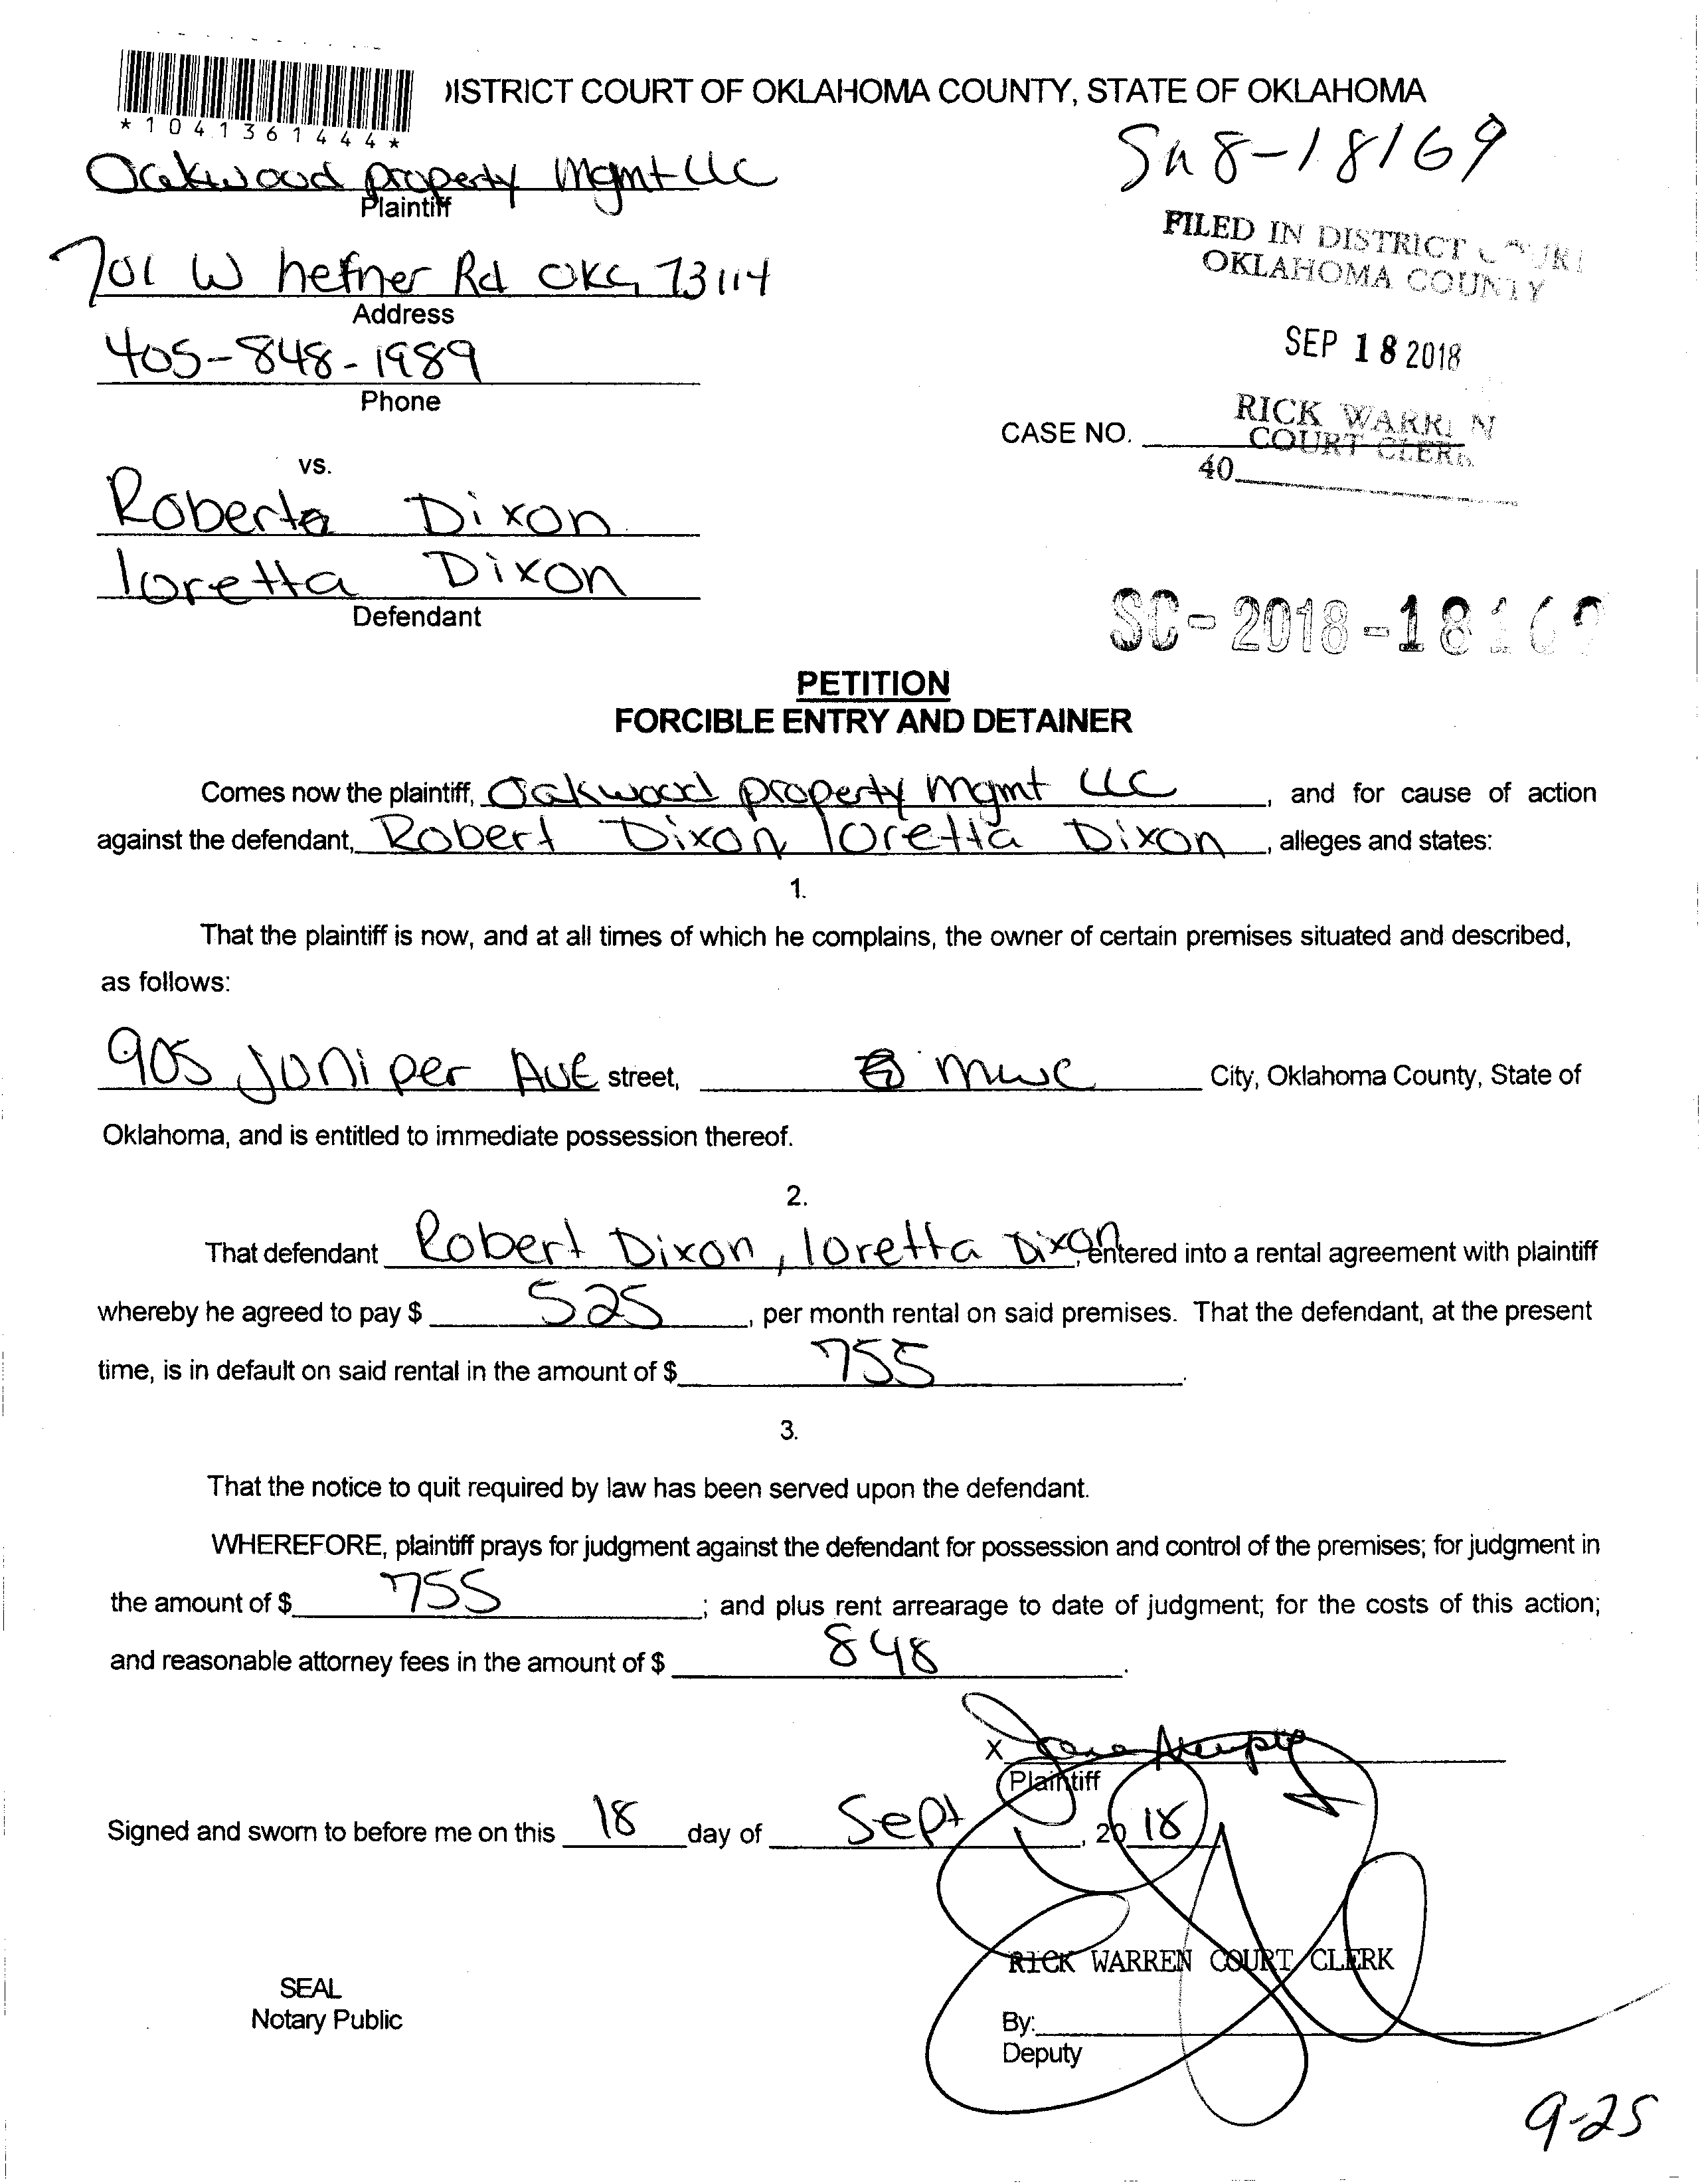 DISTRICT COURT OF OKLAHOMA COUNTY, STATE OF OKLAHOMA
*1041361444*
18169
Oakwood property Mgmt LLC
Plaintiff
FILED IN DISTRICT COURT
OKLAHOMA COUNTY
701 W hefner Rd OKC 73114
Address
SEP 18 2018
405-848-1989
Phone
RICK WARREN
COURT CLERK
CASE NO.
40
vs.
Roberto Dixon
loretta Dixon
Defendant
SC-2018-18169
PETITION
FORCIBLE ENTRY AND DETAINER
Comes now the plaintiff, Oakwood property Mgmt LLC, and for cause of action
against the defendant, Robert Dixon loretta Dixon, alleges and states:
1.
That the plaintiff is now, and at all times of which he complains, the owner of certain premises situated and described,
as follows:
905 Juniper Ave street, mwc City, Oklahoma County, State of
Oklahoma, and is entitled to immediate possession thereof.
2.
That defendant Robert Dixon, loretta Dixon, entered into a rental agreement with plaintiff
whereby he agreed to pay $ 525, per month rental on said premises. That the defendant, at the present
time, is in default on said rental in the amount of $ 755.
3.
That the notice to quit required by law has been served upon the defendant.
WHEREFORE, plaintiff prays for judgment against the defendant for possession and control of the premises; for judgment in
the amount of $ 755; and plus rent arrearage to date of judgment; for the costs of this action;
and reasonable attorney fees in the amount of $ 848.
X
Plaintiff
Signed and sworn to before me on this 18 day of Sept, 2018
RICK WARREN COURT CLERK
SEAL
Notary Public
By:
Deputy
9-25